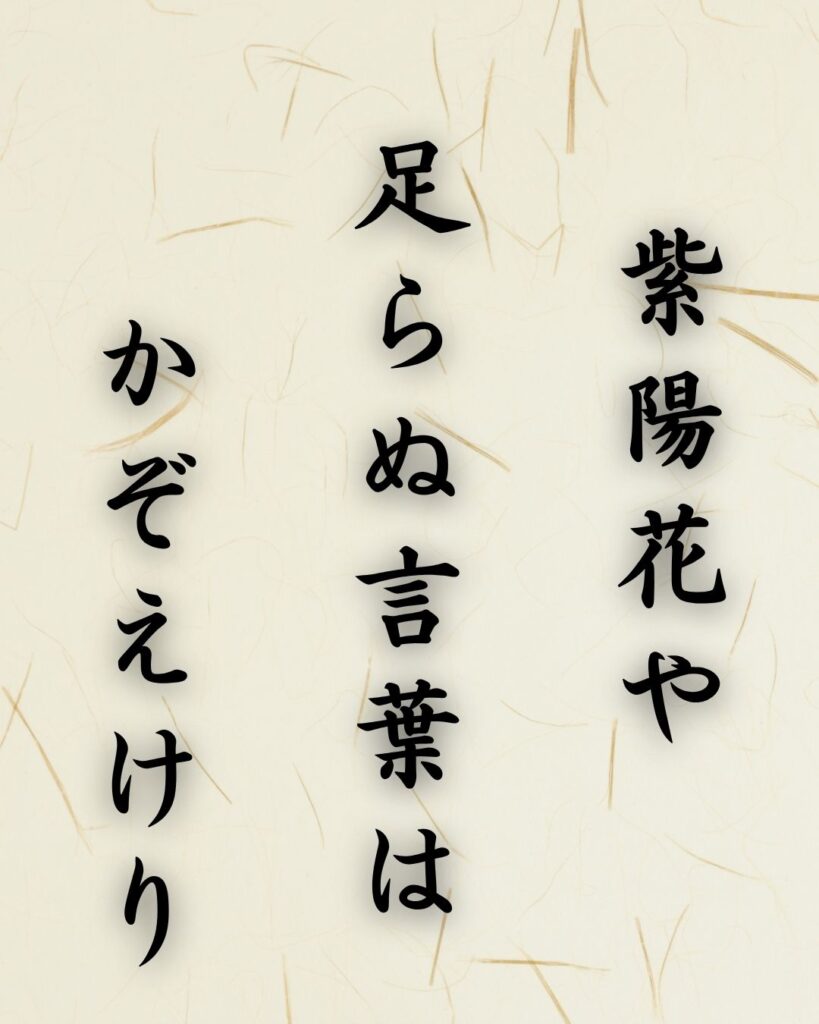 紫陽花や
足らぬ言葉は
かぞえけり